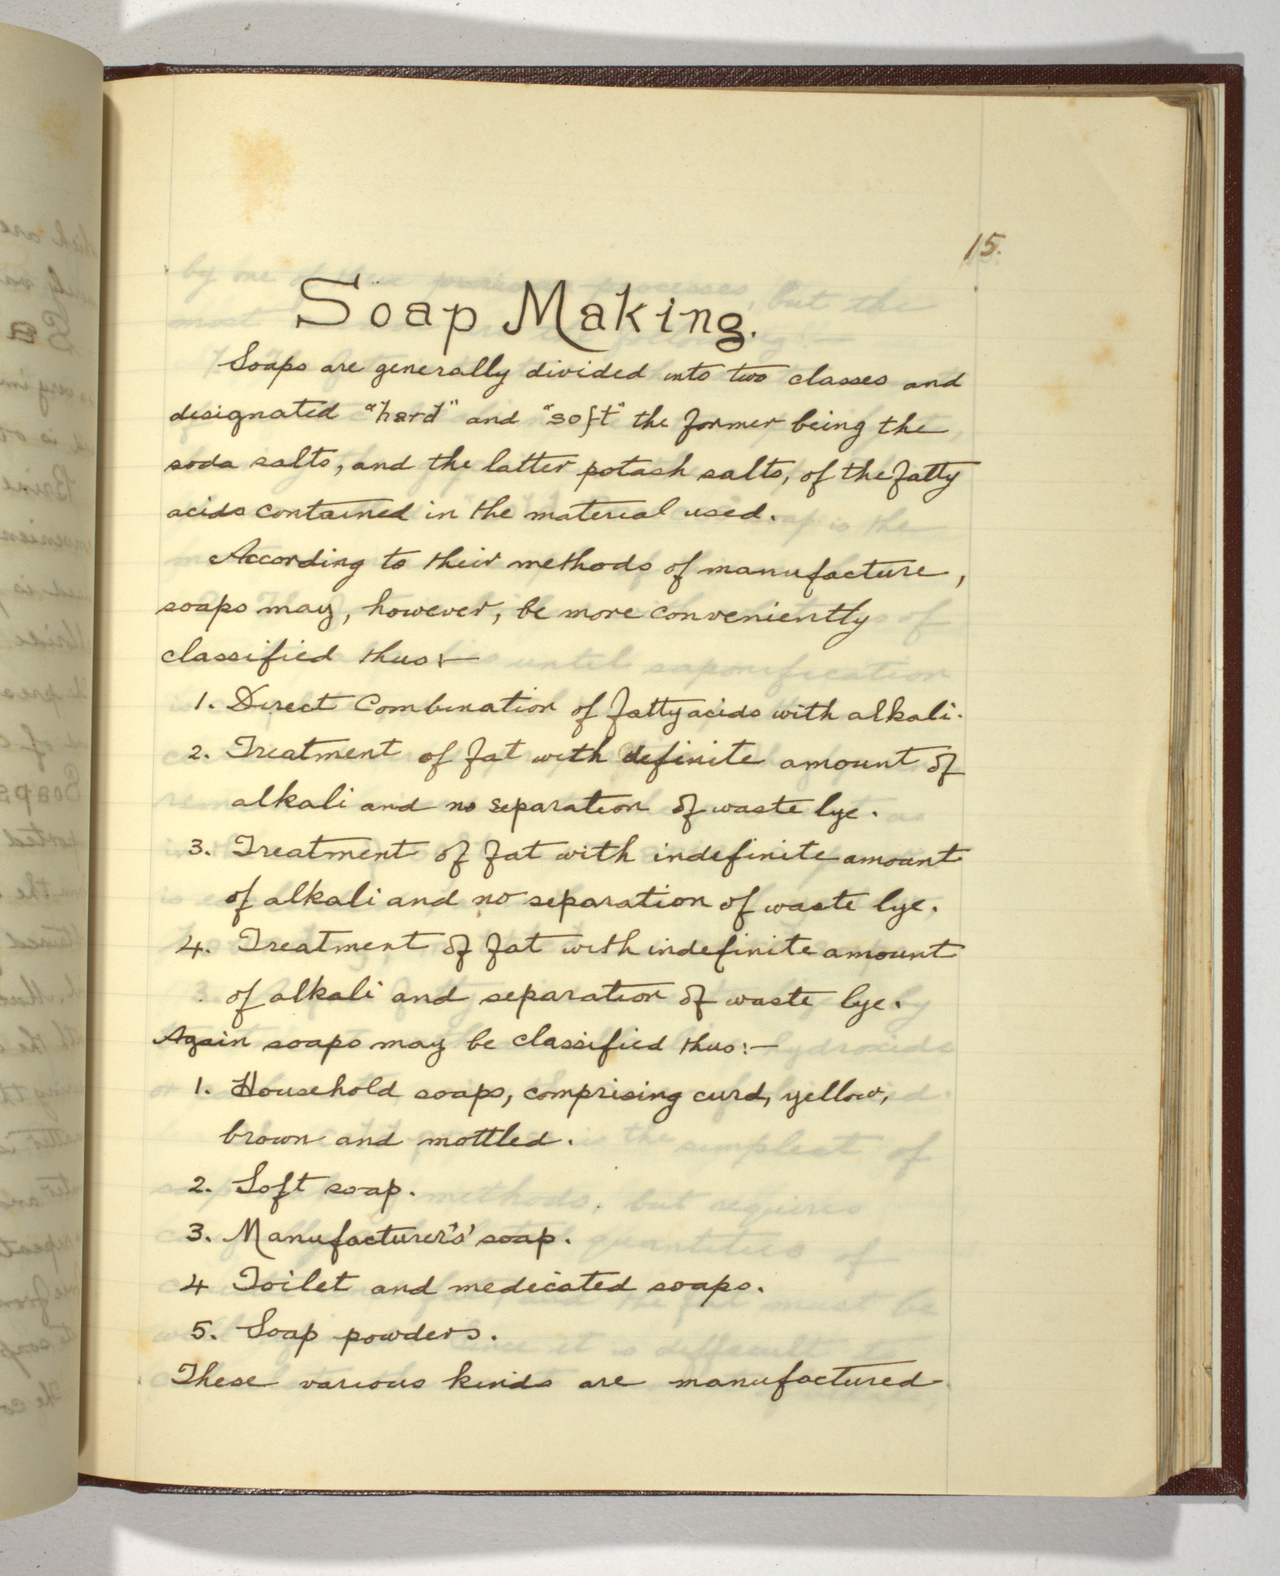 15.
Soap Making.
Soaps are generally divided into two classes and
designated "hard" and "soft" the former being the
soda salts, and the latter potash salts, of the fatty
acids contained in the material used.
According to their methods of manufacture,
soaps may, however, be more conveniently
classified thus:—
1. Direct Combination of fatty acids with alkali.
2. Treatment of fat with definite amount of
alkali and no separation of waste lye.
3. Treatment of fat with indefinite amount
of alkali and no separation of waste lye.
4. Treatment of fat with indefinite amount
of alkali and separation of waste lye.
Again soaps may be classified thus:—
1. Household soaps, comprising curd, yellow,
brown and mottled.
2. Soft soap.
3. Manufacturer's' soap.
4 Toilet and medicated soaps.
5. Soap powders.
These various kinds are manufactured